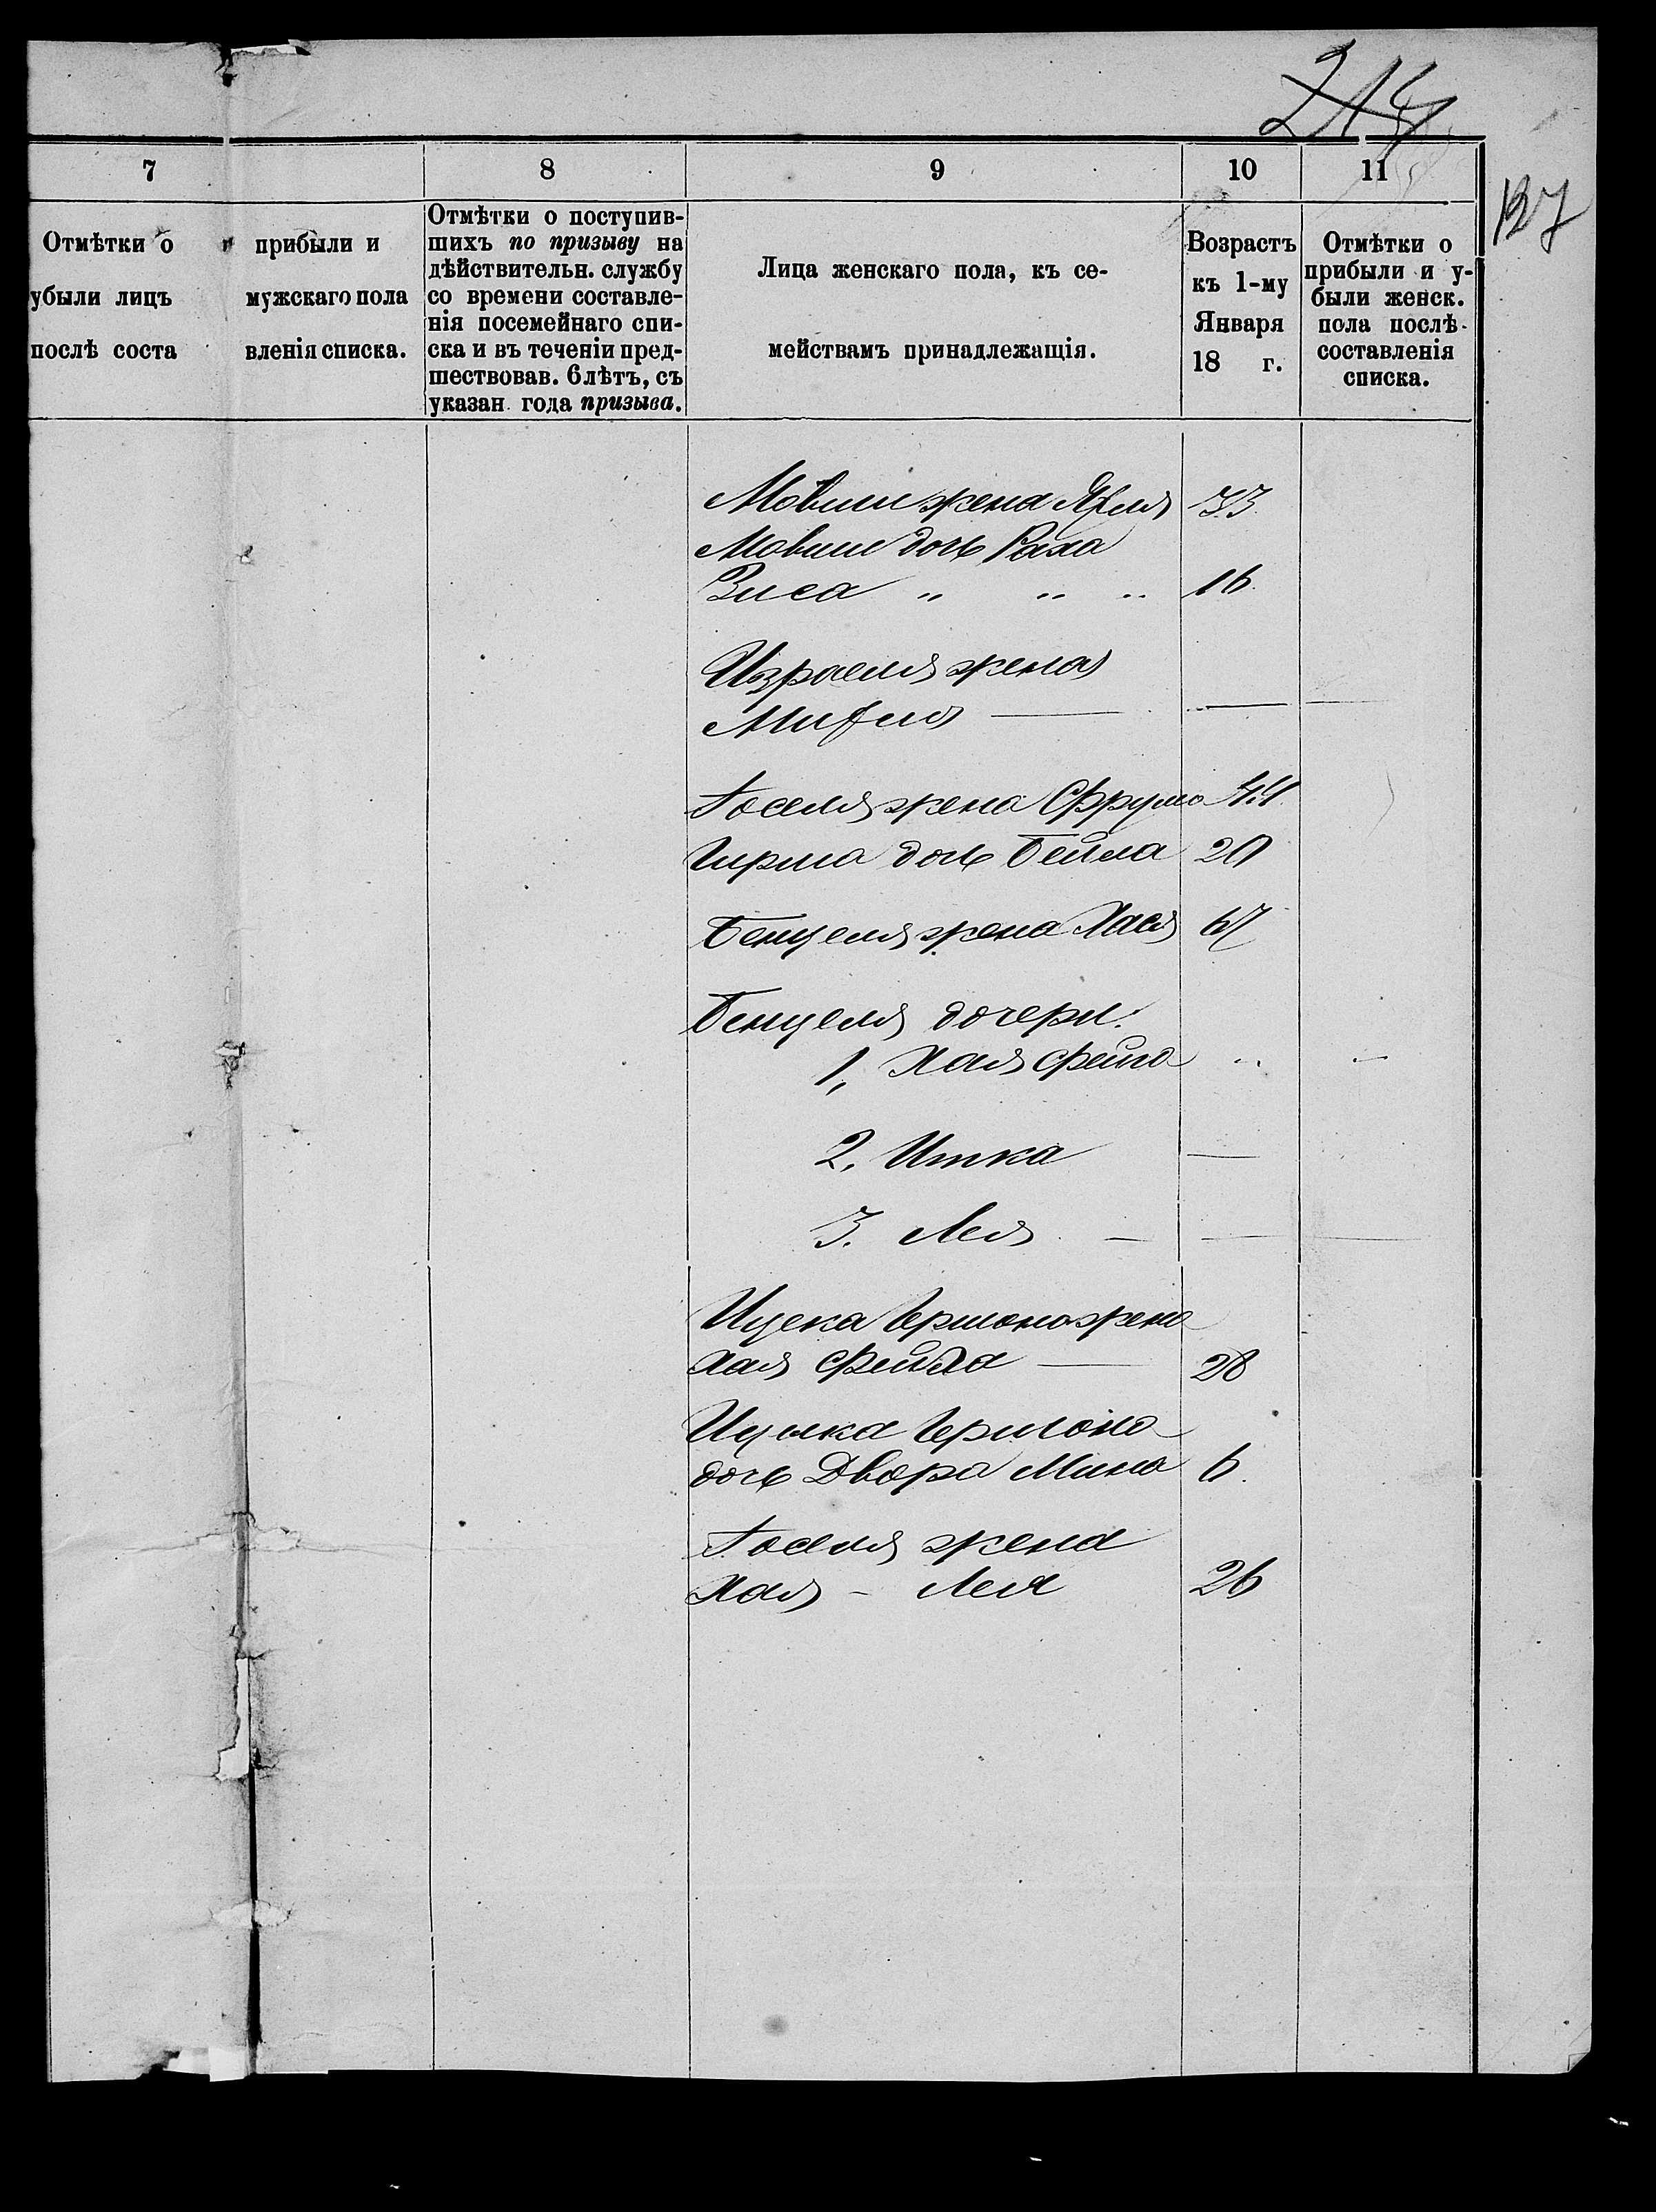 214
127
7 8 9 10 11
Отмѣтки о прибыли и
убыли лицъ мужскаго пола
послѣ соста вленія списка.
Отмѣтки о поступив-
шихъ по призыву на
дѣйствительн. службу
со времени составле-
нія посемейнаго спи-
ска и въ теченіи пред-
шествовав. 6 лѣтъ, съ
указан. года призыва.
Лица женскаго пола, къ се-
мействамъ принадлежащія.
Возрастъ
къ 1-му
Января
18 г.
Отмѣтки о
прибыли и у-
были женск.
пола послѣ
составленія
списка.
Мовши жена 33
Мовши дочь Раха
Зиса " " " 16.
Израеля жена
Іоселя жена Фрума 44
Гирша дочь Бейла 20
Бенцеля жена Хася 67
Бенцеля дочери:
1, Хая Фейга
2. Итка —
3. Лея —
Ицека Гершона жена
Хая Фейга — 28
Ицика Гершона
дочь Двора Мина 6.
Іоселя жена
Хая - Лея 26